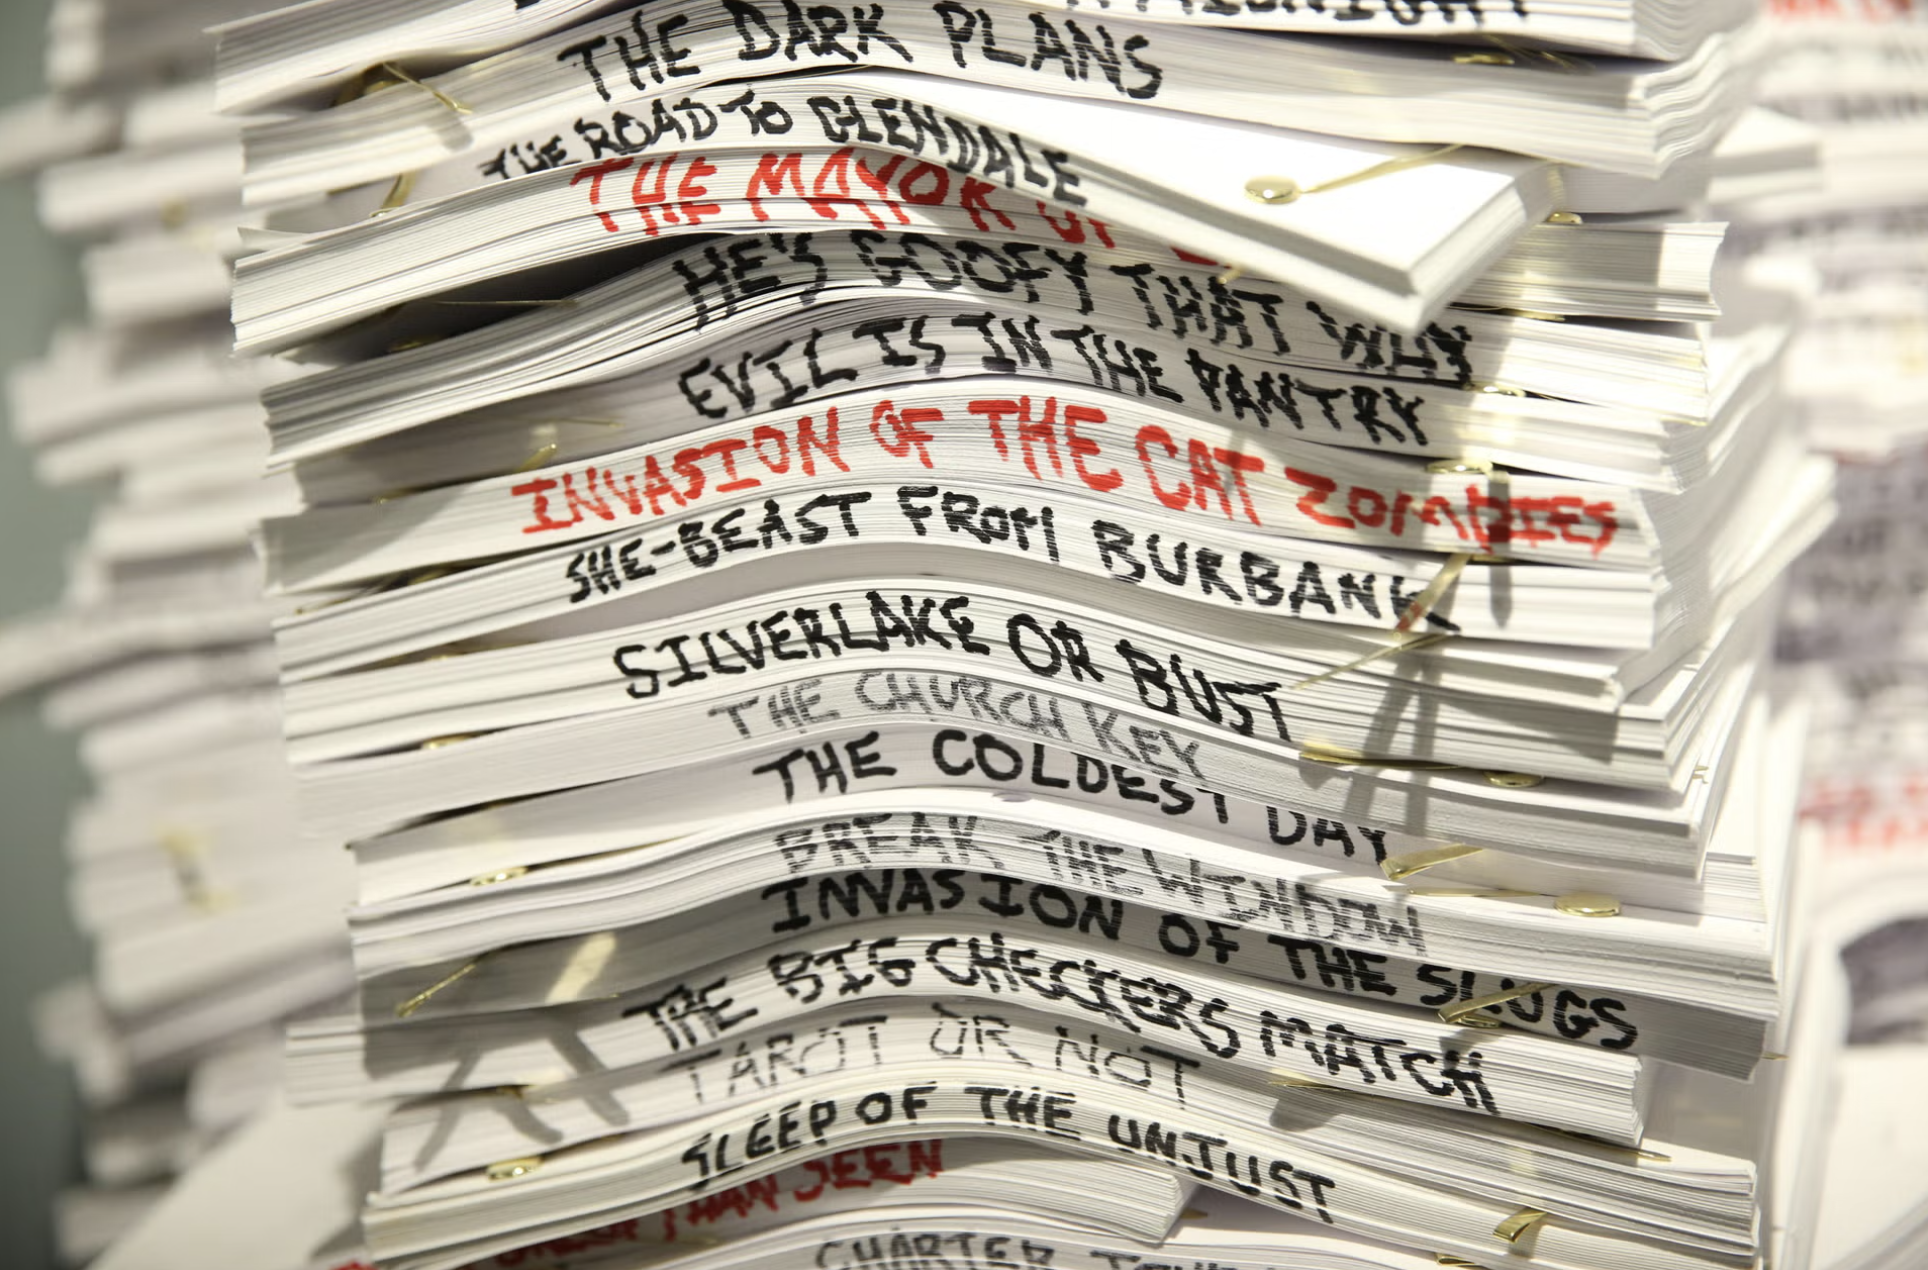 THE DARK PLANS
THE ROAD TO GLENDALE
THE MAYOR OF
HE'S GOOFY THAT WAY
EVIL IS IN THE PANTRY
INVASION OF THE CAT ZOMBIES
SHE-BEAST FROM BURBANK
SILVERLAKE OR BUST
THE CHURCH KEY
THE COLDEST DAY
BREAK THE WINDOW
INVASION OF THE SLUGS
THE BIG CHECKERS MATCH
TAROT OR NOT
SLEEP OF THE UNJUST
THAN SEEN
CHARTER